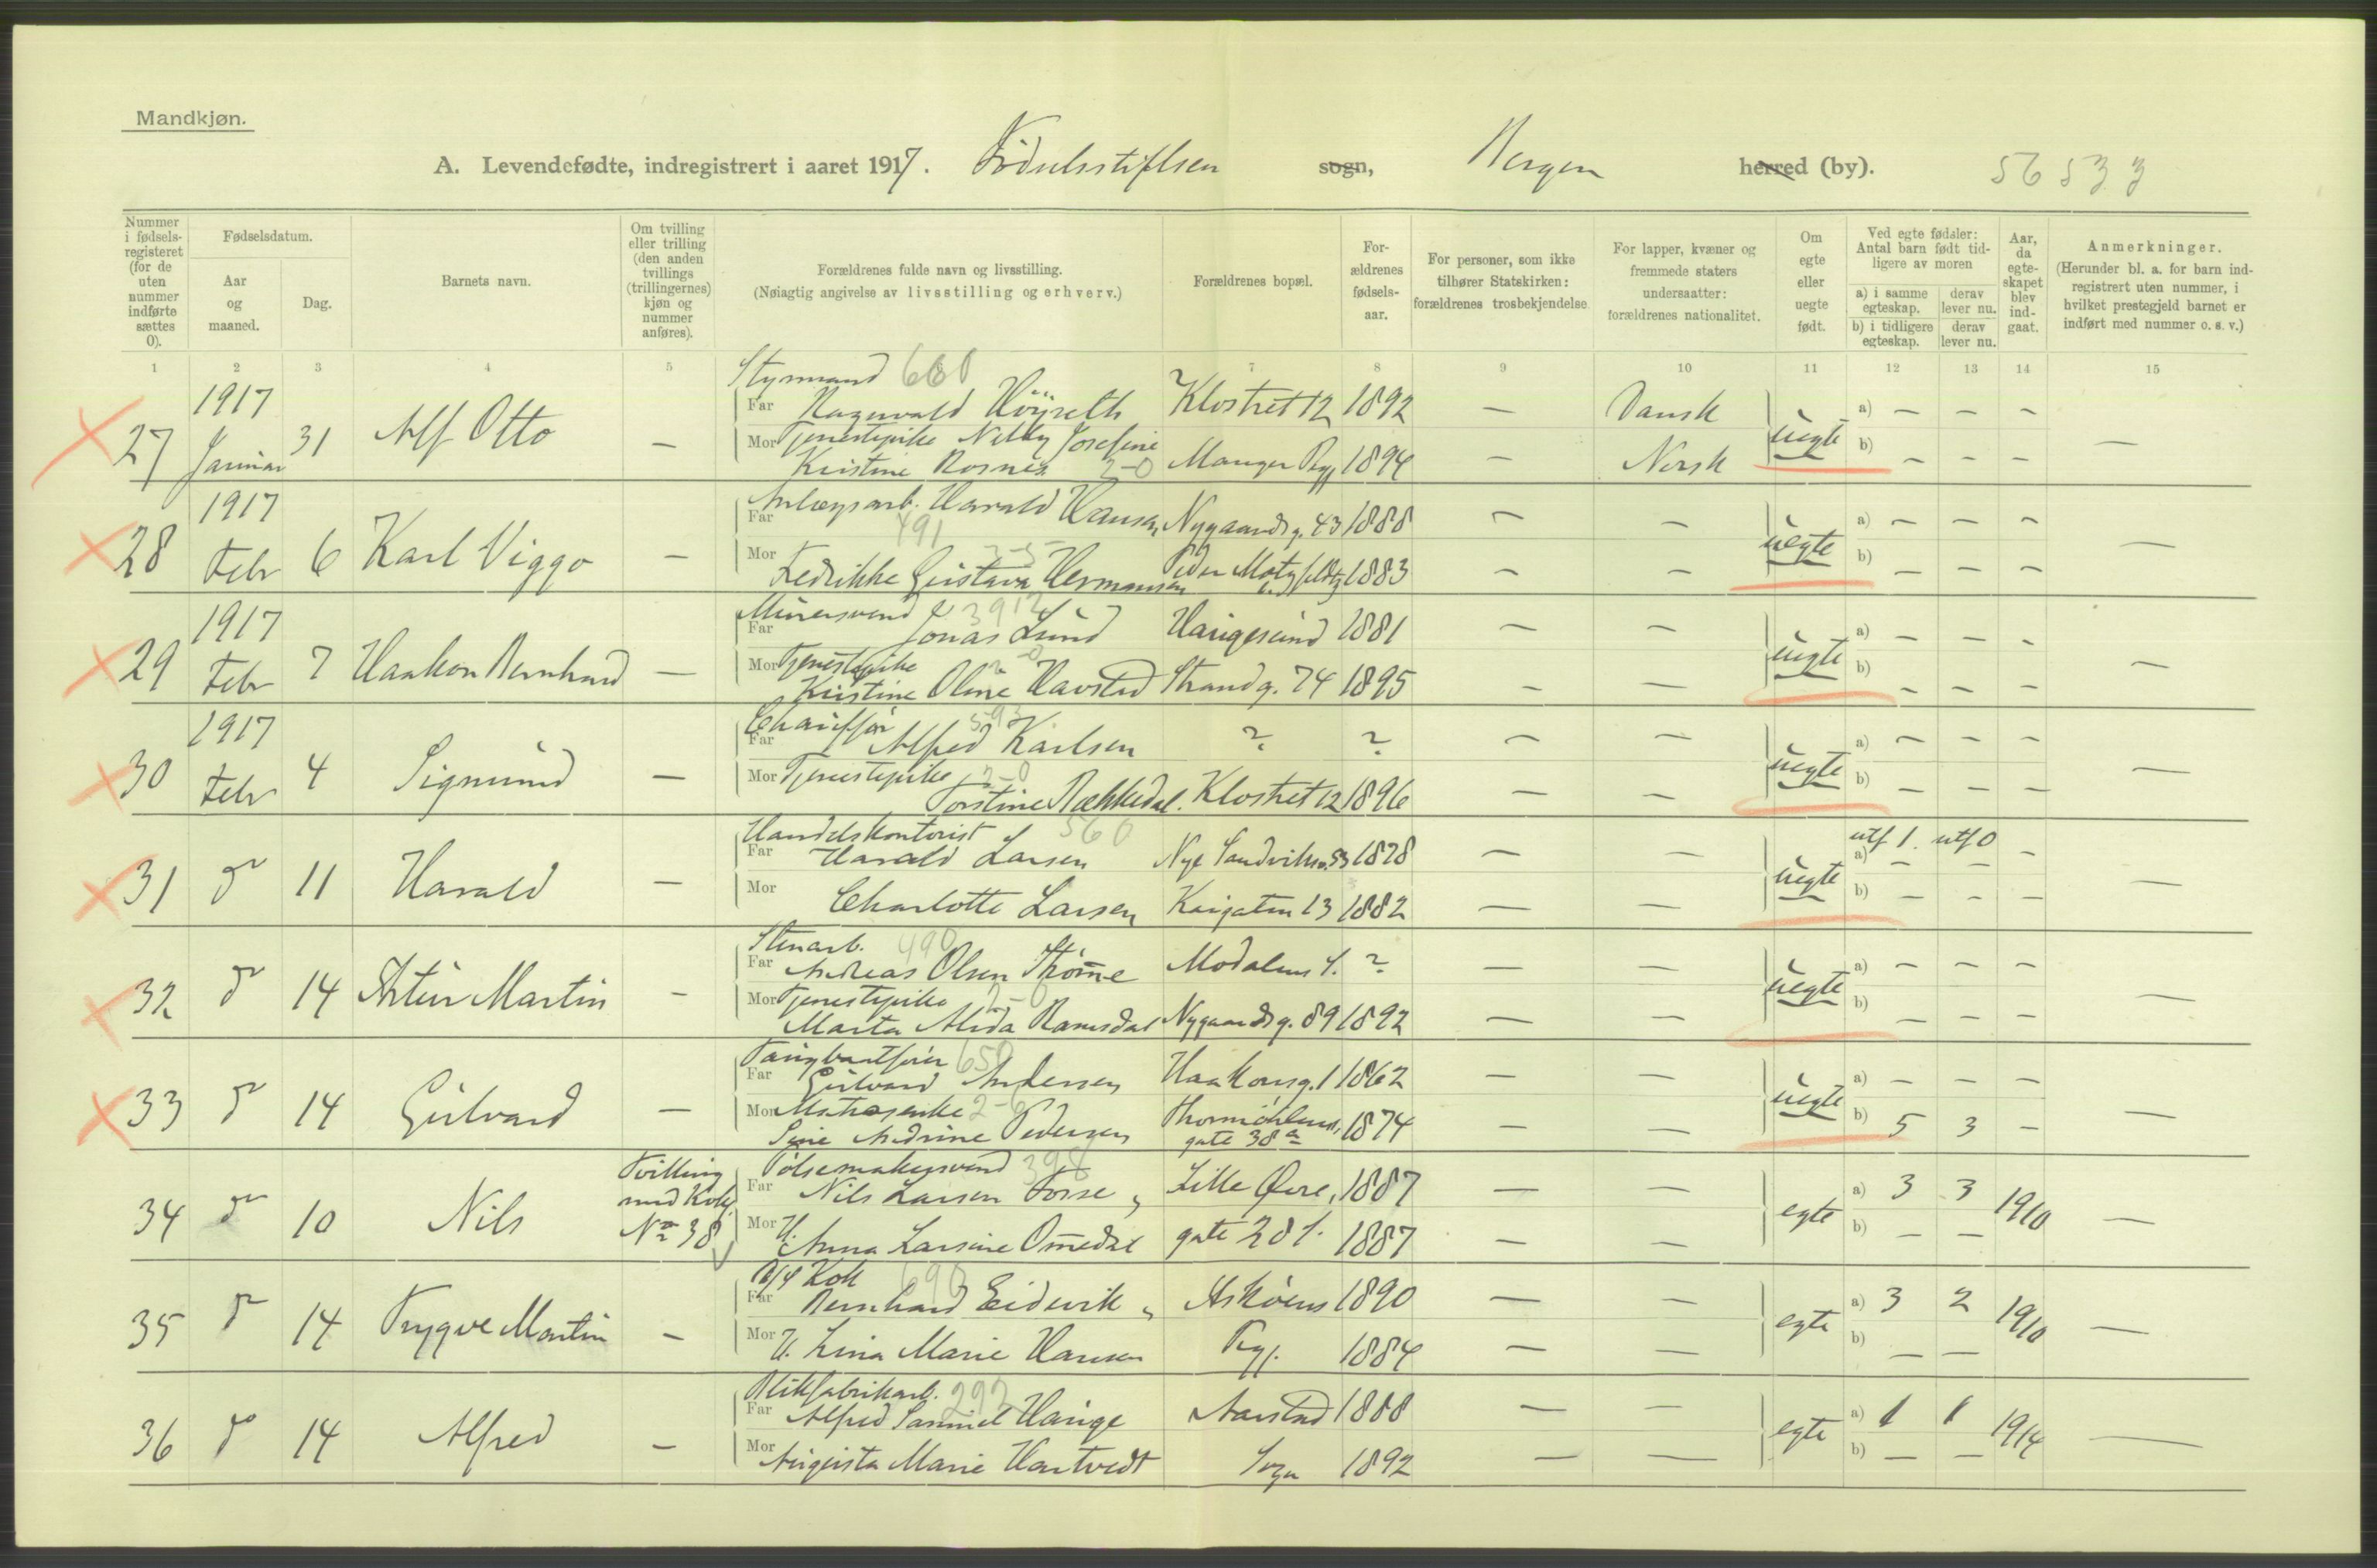 Mandkjøn.
A. Levendefødte, indregistrert i aaret 1917. Födselsstiftelsen sogn, Bergen herred (by). 56533
Nummer i fødsels-registeret (for de uten nummer indførte sættes 0).
Fødselsdatum.
Aar og maaned.
Dag.
Barnets navn.
Om tvilling eller trilling (den anden tvillings (trillingernes) kjøn og nummer anføres).
Forældrenes fulde navn og livsstilling.
(Nøiagtig angivelse av livsstilling og erhverv.)
Forældrenes bopæl.
For-ældrenes fødsels-aar.
For personer, som ikke tilhører Statskirken: forældrenes trosbekjendelse
For lapper, kvæner og fremmede staters undersaatter: forældrenes nationalitet.
Om egte eller uegte født.
Ved egte fødsler: Antal barn født tid-ligere av moren
a) i samme egteskap. derav lever nu.
b) i tidligere egteskap. derav lever nu.
Aar, da egte-skapet blev ind-gaat.
Anmerkninger.
(Herunder bl. a. for barn ind-registrert uten nummer, i hvilket prestegjeld barnet er indført med nummer o. s. v.)
1 2 3 4 5 7 8 9 10 11 12 13 14 15
Styrmand 660
27 1917 Januar 31 Alf Otto — Far Ragnvald Klostret 12 1892 — Dansk uegte a) — — —
Mor Tjenestepike Nelly Josefine
Kristine Rosnes 2-0 Manger Pgj 1894 — Norsk b) — — — —
28 1917 Febr 6 Karl Viggo — Far Anlægsarb. Harald Hansen Nygaardsg. 43 1888 — — uegte a) — — —
491
Mor Fedrikke Gustava Hermansen Peder 1883 — — b) —
29 1917 Febr 7 Haakon Bernhard — Far Murersvend Jonas Lund 391 Haugesund 1881 — — uegte a) — — —
Mor Tjenestepike 2-0
Kristine Oline Havsted Strandg. 74 1895 — — b) — — — —
30 1917 Febr 4 Sigmund — Far Chauffør 593 Alfred Karlsen ? ? — — uegte a) — — —
Mor Tjenestepike 2-0
Torstine Rækkedal. Klostret 12 1896 — — b) — — — —
Handelskontorist 560 utf 1. utf 0
31 d° 11 Harald — Far Harald Larsen Nye Sandviksv. 53 1878 — — uegte a) — — —
Mor Charlotte Larsen Kaigaten 13 1882 — — b) — — — —
Stenarb. 490
32 d° 14 Artur Martin — Far Andreas Olsen Modalens S. ? — — uegte a) — — —
Mor Tjenestepike 2-0
Marta Alida Ramsdal Nygaardsg. 89 1892 — — b) — — — —
650
33 d° 14 Gulvard — Far Gulvard Andersen Haakonsg. 1 1862 — — uegte a) — — —
Mor Matrosenke 2-6
Sine Andrine Pedersen Thormöhlens gate 38 a 1874 — — b) 5 3 — —
Pölsemakersvend 398
34 d° 10 Nils Tvilling med Kvkj. No 38 Far Nils Larsen Fosse, Lille Øvre, 1887 — — egte a) 3 3 1910 —
Mor H. Anna Larsine Omedal gate 28 1. 1887 — — b) — —
D/S Kok 690
35 d° 14 Trygve Martin — Far Bernhard Eidevik, Askøens 1890 — — egte a) 3 2 1910 —
Mor H. Lina Marie Hansen Pgj. 1884 — — b) — —
Blikfabrikarb. 292
36 d° 14 Alfred — Far Alfred Samuel Hauge Aarstad 1888 — — egte a) 1 1 1914 —
Mor Augusta Marie Hartvedt Sogn 1892 — — b) — —